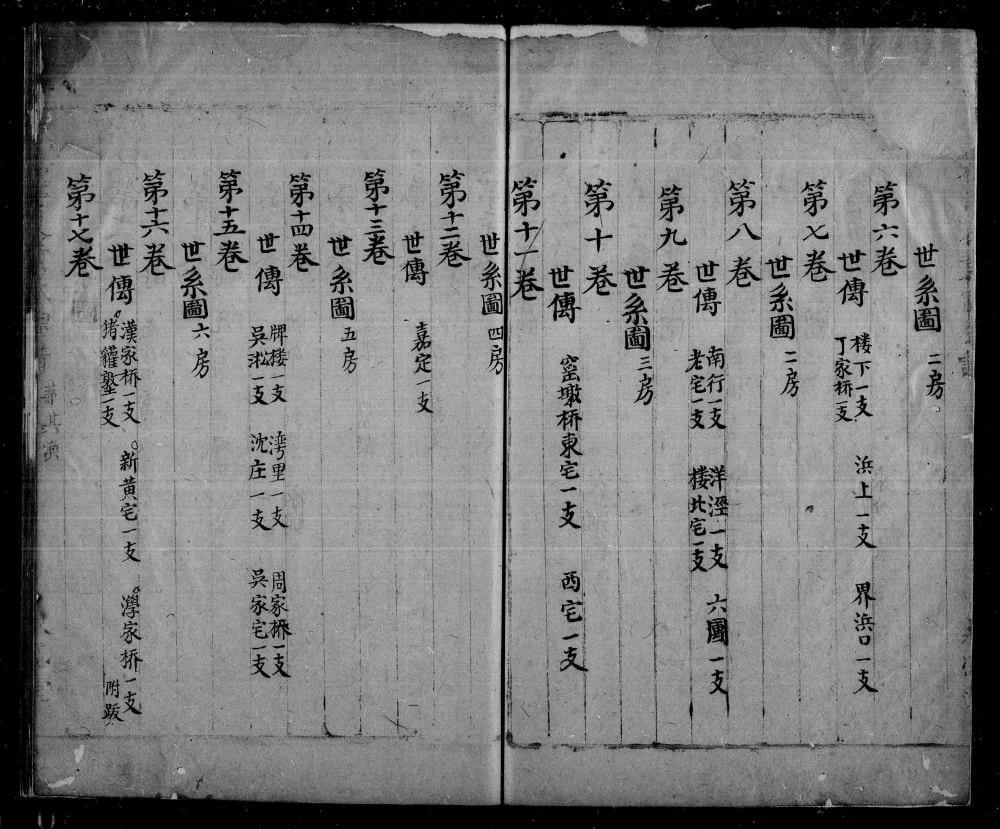 世系圖 二房
第六卷
世傳 楼下一支 丁家桥一支 浜上一支 界浜口一支
第七卷
世系圖 二房
第八卷
世傳 南行一支 老宅一支 洋涇一支 楼北宅一支 六團一支
第九卷
世系圖 三房
第十卷
世傳 窑墩桥東宅一支 西宅一支
第十一卷
世系圖 四房
第十二卷
世傳 嘉定一支
第十三卷
世系圖 五房
第十四卷
世傳 牌楼一支 吳淞一支 湾里一支 沈庄一支 周家桥一支 吳家宅一支
第十五卷
世系圖 六房
第十六卷
世傳 漢家桥一支 猪獾墪一支 新黄宅一支 家桥一支 附跋
第十七卷